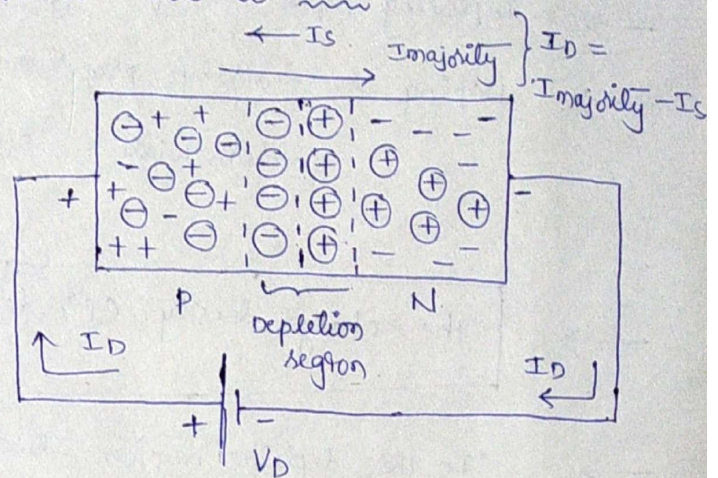 ← Is
Imajority } ID =
Imajority - Is
+ -
P N
Depletion
region
ID ID
+ -
VD